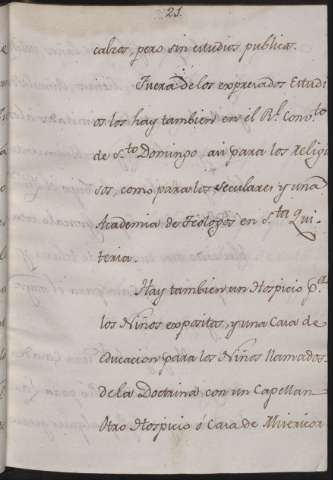 21.
cabras, pero sin estudios publicos.
Fuera de los expresados Estudi
os los hay tambien en el Rl. Convto
de Sto Domingo asi para los religio
sos, como para los Seculares y una
Academia de Teologos en Sta Qui-
teria.
Hay tambien un Hospicio pa
los Niños expositos, y una Casa de
educacion para los Niños llamados
de la Doctrina con un Capellan
Otro Hospicio ó Casa de Misericor